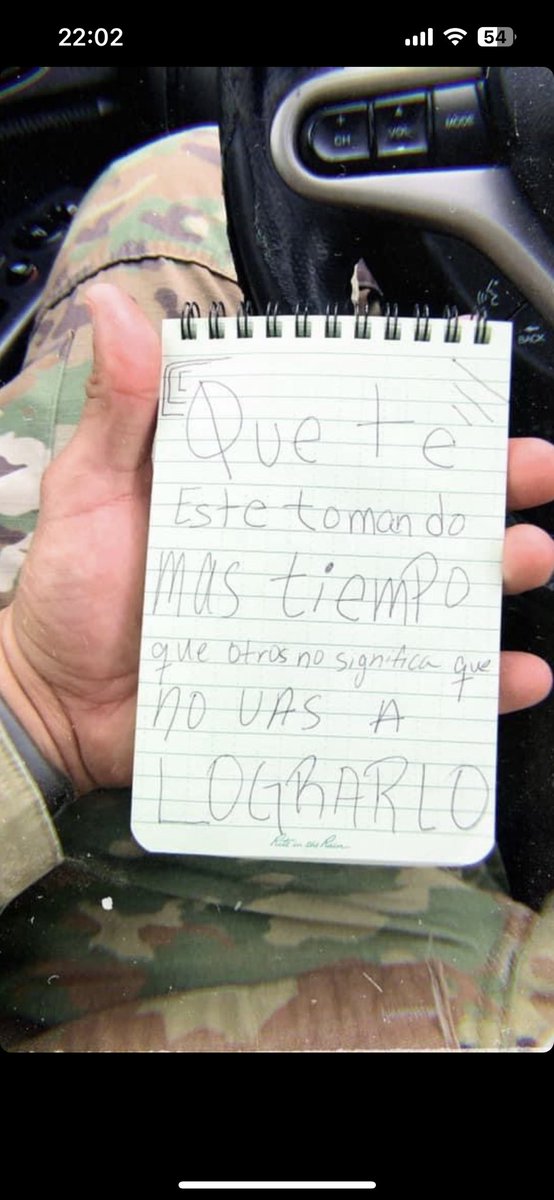 22:02
54
+
CH
VOL
MODE
BACK
Que te
Este tomando
mas tiempo
que otros no significa que
no VAS A
LOGRARLO
Rite in the Rain